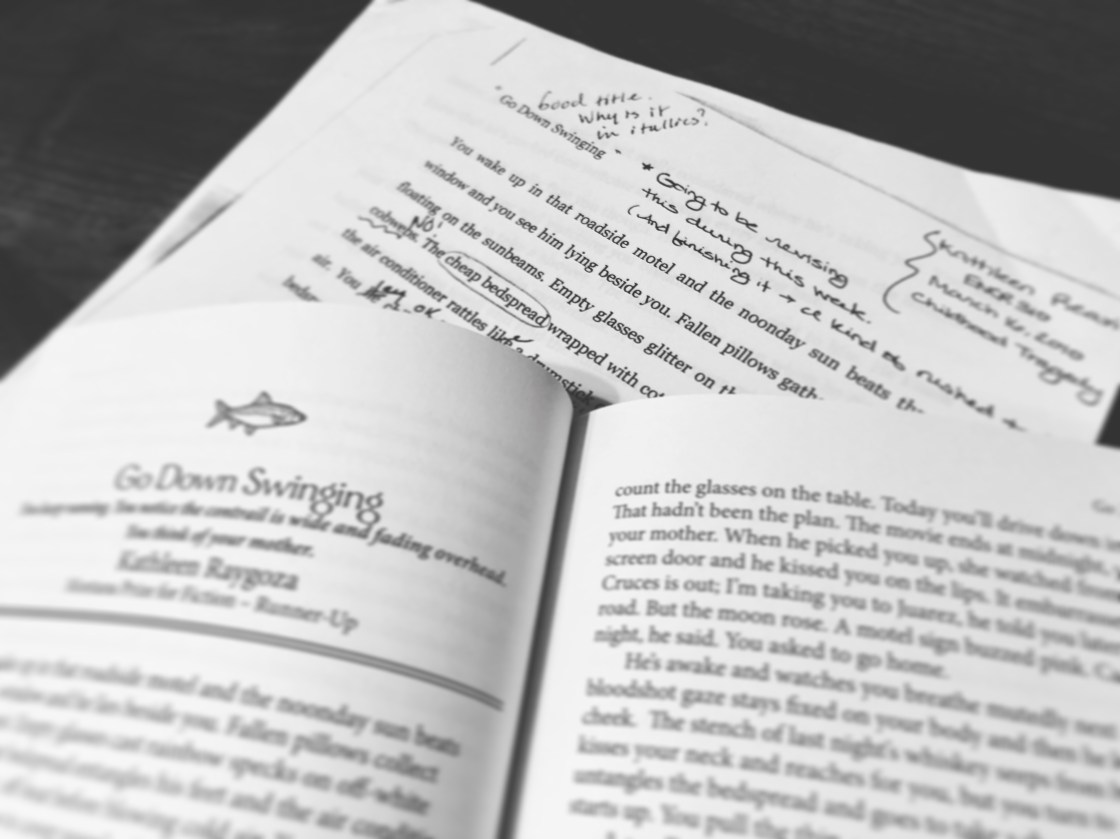 Good title.
Why is it
in itallics?
"Go Down Swinging"
* Going to be revising
this during this week.
(And finishing it → kind of rushed
Kathleen
ENGR
March
Childhood Tragedy
You wake up in that roadside motel and the noonday sun beats th-
window and you see him lying beside you. Fallen pillows gath-
floating on the sunbeams. Empty glasses glitter on th
cobwebs. The cheap bedspread wrapped with cot
No!
the air conditioner rattles like a drumstick
air. You
ok
Go Down Swinging
You notice the contrail is wide and fading overhead.
You think of your mother.
Kathleen Raygoza
Prize for Fiction – Runner-Up
up in that roadside motel and the noonday sun beats
and see him lie beside you. Fallen pillows collect
glasses cast rainbow specks on off-white
entangles his feet and the air conditio
before blowing cold air.
count the glasses on the table. Today you'll drive down
That hadn't been the plan. The movie ends at midnight,
your mother. When he picked you up, she watched from
screen door and he kissed you on the lips. It embarr
Cruces is out; I'm taking you to Juarez, he told you late
road. But the moon rose. A motel sign buzzed pink.
night, he said. You asked to go home.
He's awake and watches you breathe mutedly
bloodshot gaze stays fixed on your body and then he
cheek. The stench of last night's whiskey seeps from
kisses your neck and reaches for you, but you turn
untangles the bedspread and goes to
starts up. You pull the